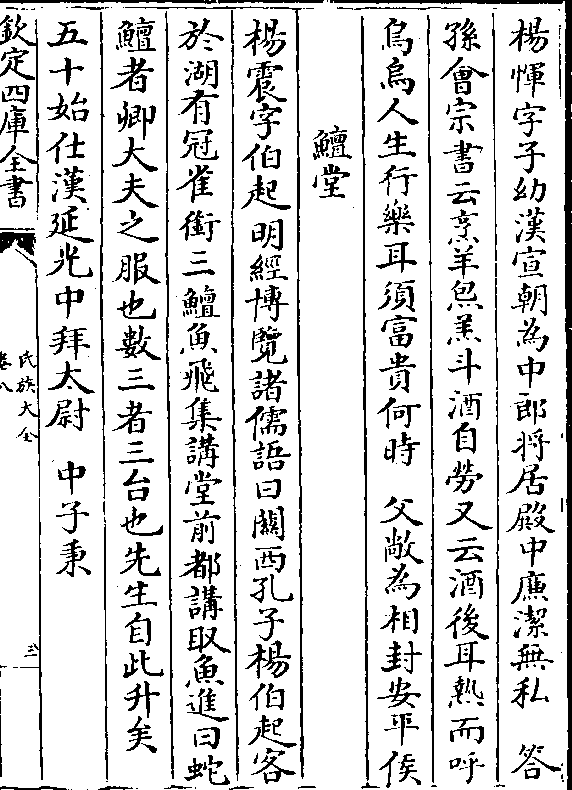 楊惲字子幼漢宣朝為中郎將居殿中廉潔無私　答
孫會宗書云烹羊炰羔斗酒自勞又云酒後耳熱而呼
烏烏人生行樂耳須富貴何時　父敞為相封安平侯
鱣堂
楊震字伯起明經博覽諸儒語曰關西孔子楊伯起客
於湖有冠雀銜三鱣魚飛集講堂前都講取魚進曰蛇
鱣者卿大夫之服也數三者三台也先生自此升矣
五十始仕漢延光中拜太尉　中子秉
欽定四庫全書
氏族大全
卷八